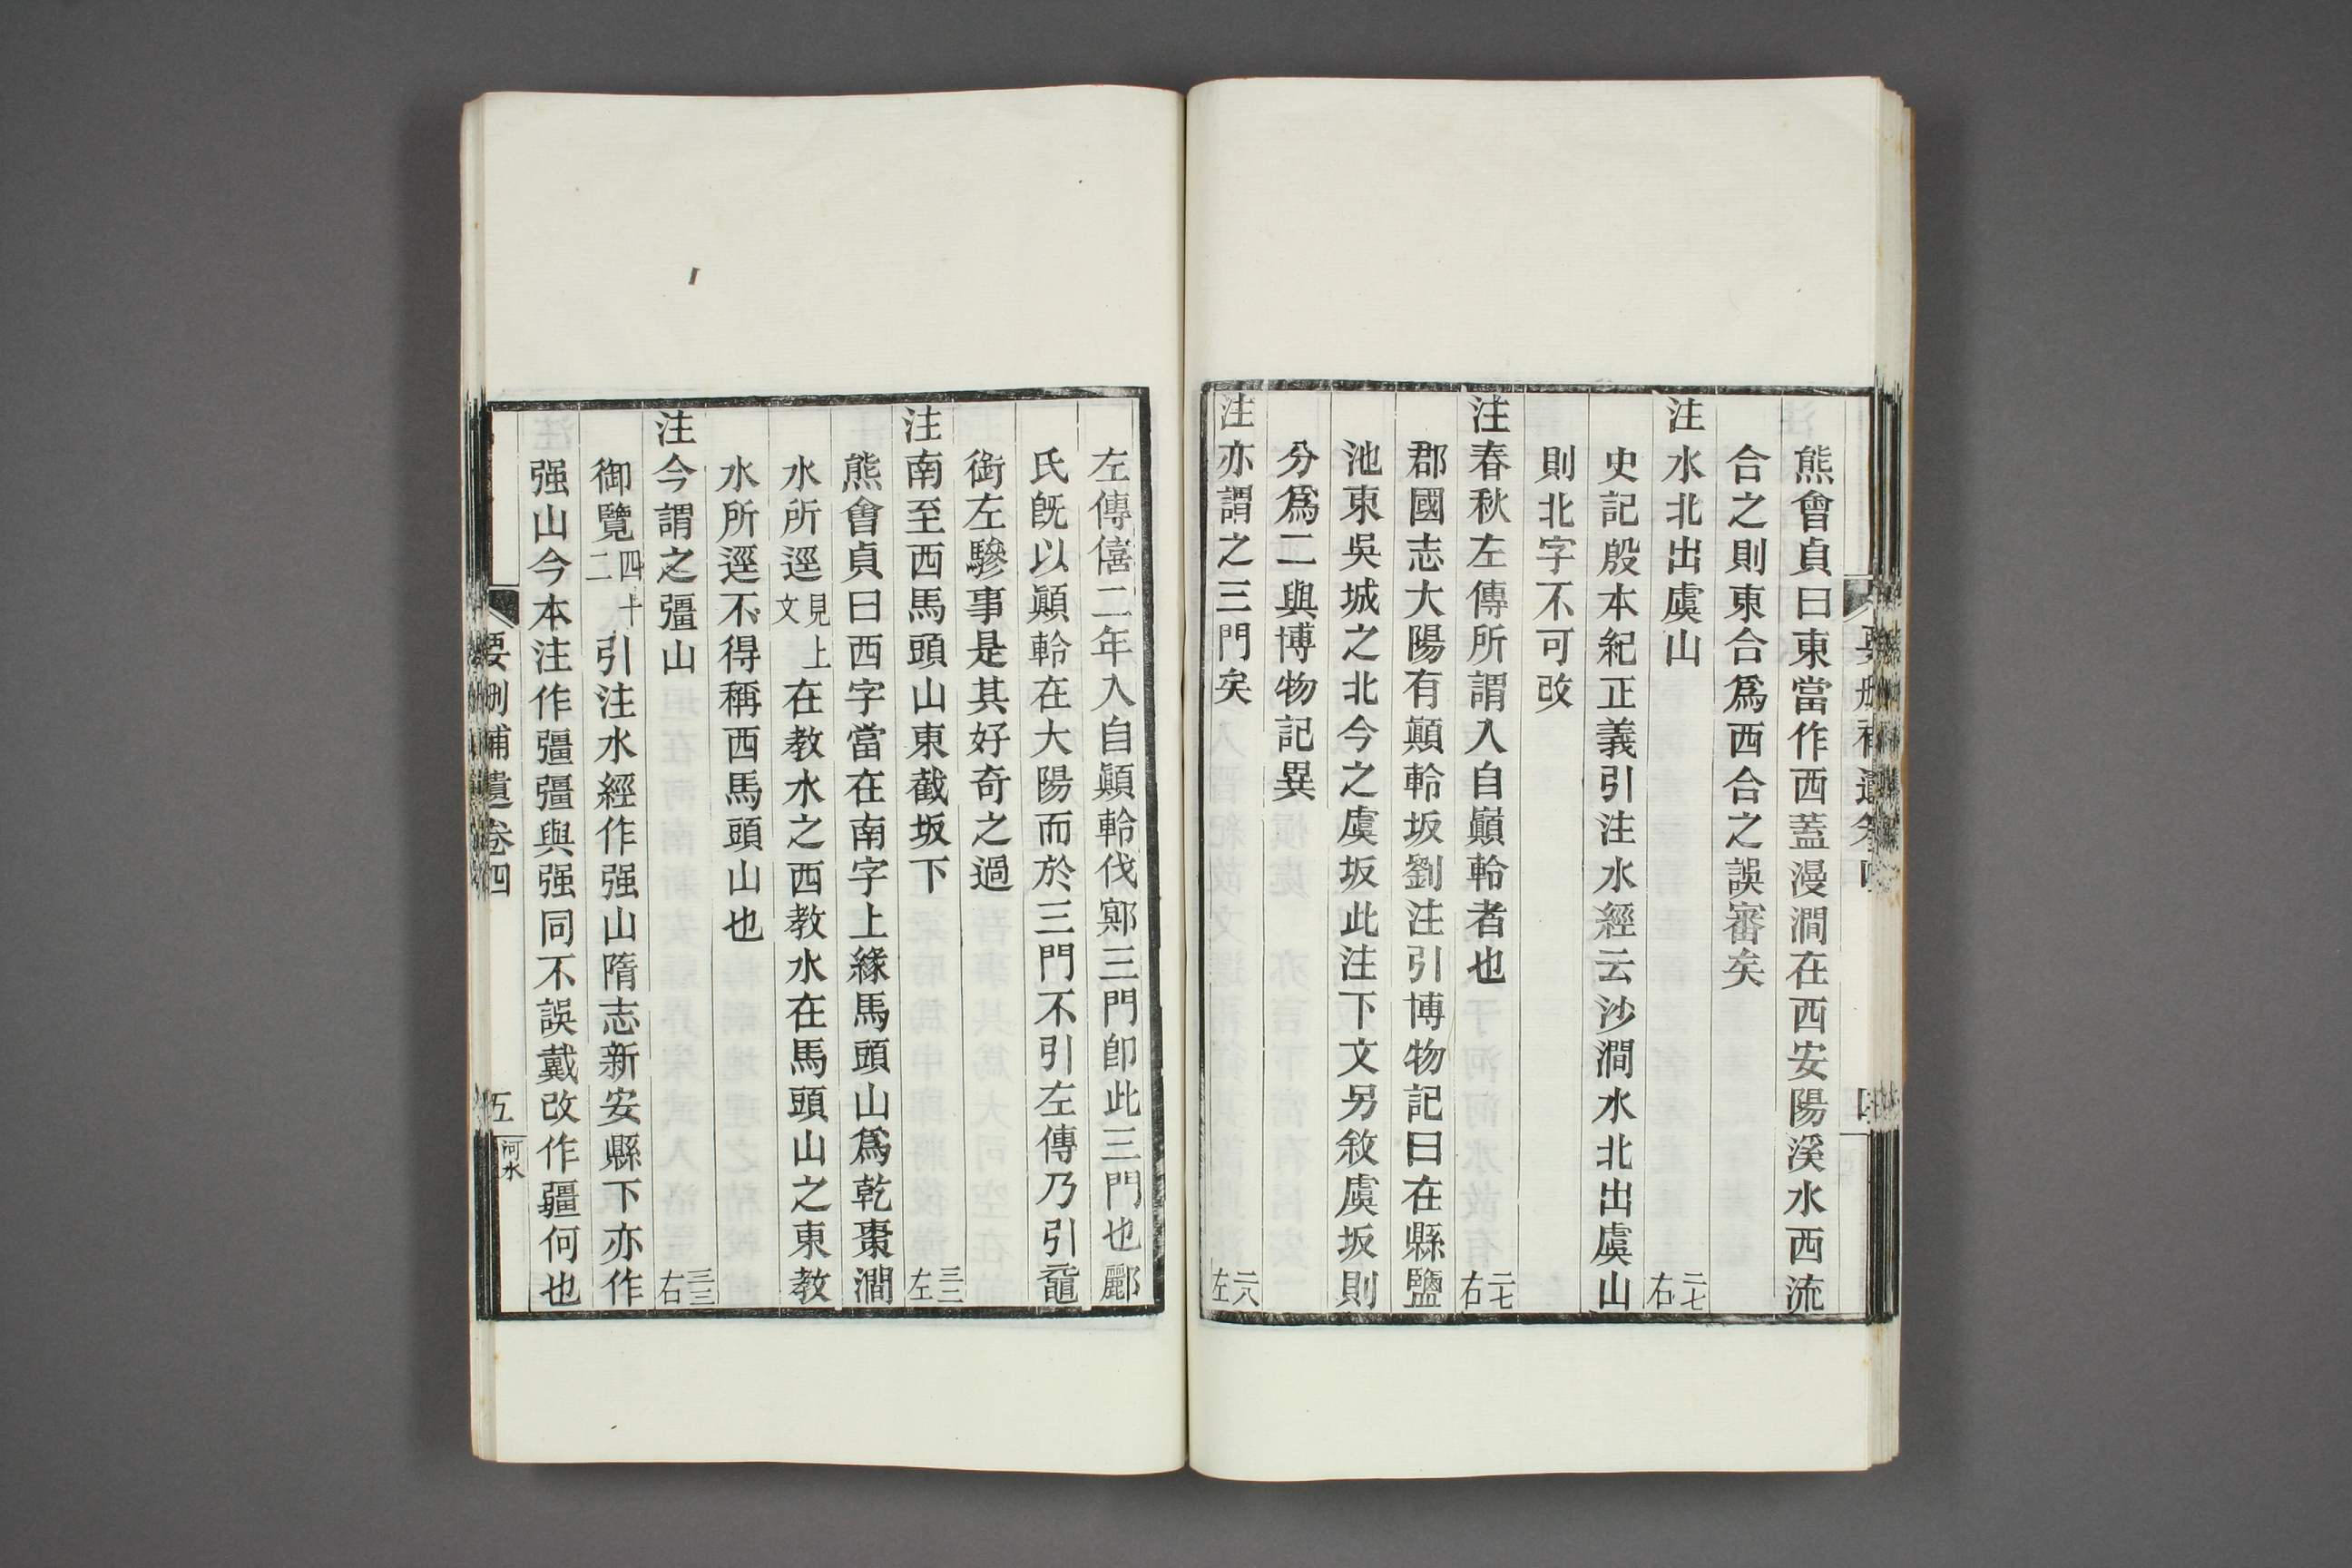 熊會貞曰東當作西蓋漫澗在西安陽溪水西流
合之則東合爲西合之誤審矣
注水北出虞山 二七右
史記殷本紀正義引注水經云沙澗水北出虞山
則北字不可改
注春秋左傳所謂入自巔軨者也 二七右
郡國志大陽有顚軨坂劉注引博物記曰在縣鹽
池東吳城之北今之虞坂此注下文另敘虞坂則
分爲二與博物記異
注亦謂之三門矣 二八左
左傳僖二年入自顚軨伐鄍三門卽此三門也酈
氏旣以顚軨在大陽而於三門不引左傳乃引黿
銜左驂事是其好奇之過
注南至西馬頭山東截坂下 三二左
熊會貞曰西字當在南字上緣馬頭山爲乾棗澗
水所逕見上文在教水之西教水在馬頭山之東教
水所逕不得稱西馬頭山也
注今謂之彊山 三三右
御覽四十二引注水經作强山隋志新安縣下亦作
强山今本注作彊彊與强同不誤戴改作疆何也
要刪補遺卷四
五
河水